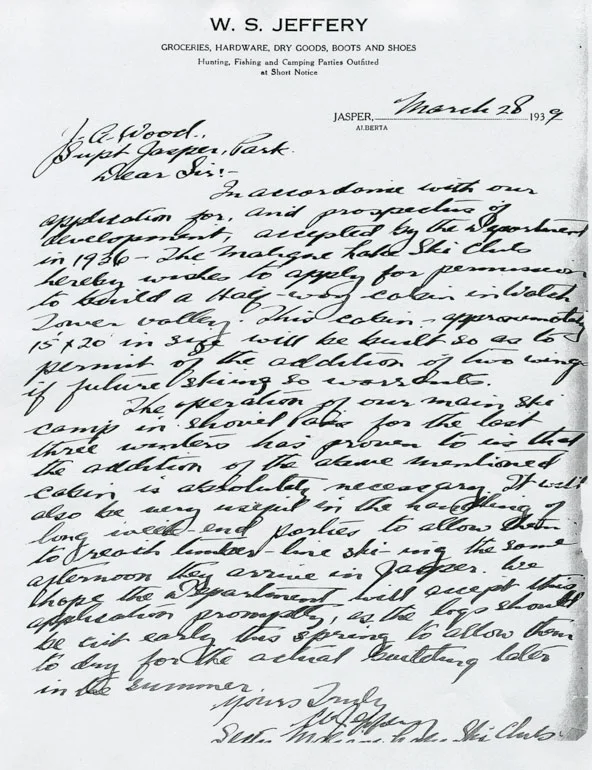 W. S. JEFFERY
GROCERIES, HARDWARE, DRY GOODS, BOOTS AND SHOES
Hunting, Fishing and Camping Parties Outfitted
at Short Notice
JASPER, March 28 1939
ALBERTA
J. A. Wood.,
Supt Jasper, Park.
Dear Sir:-
In accordance with our
application for, and prospectus of
development, accepted by the Department
in 1936 - The Maligne Lake Ski Club
hereby wishes to apply for permission
to build a Half-way cabin in Watch
Tower valley. This cabin - approximately
15 x 20 in size will be built so as to
permit of the addition of two wings
if future skiing so warrants.
The operation of our main ski
camp in Shovel Pass for the last
three winters has proven to us that
the addition of the above mentioned
cabin is absolutely necessary. It will
also be very useful in the handling of
long week-end parties to allow them
to reach timber-line ski-ing the same
afternoon they arrive in Jasper. We
hope the Department will accept this
application promptly, as the logs should
be cut early this spring to allow them
to dry for the actual building later
in the summer.
Yours Truly
W Jeffery
Ski Club